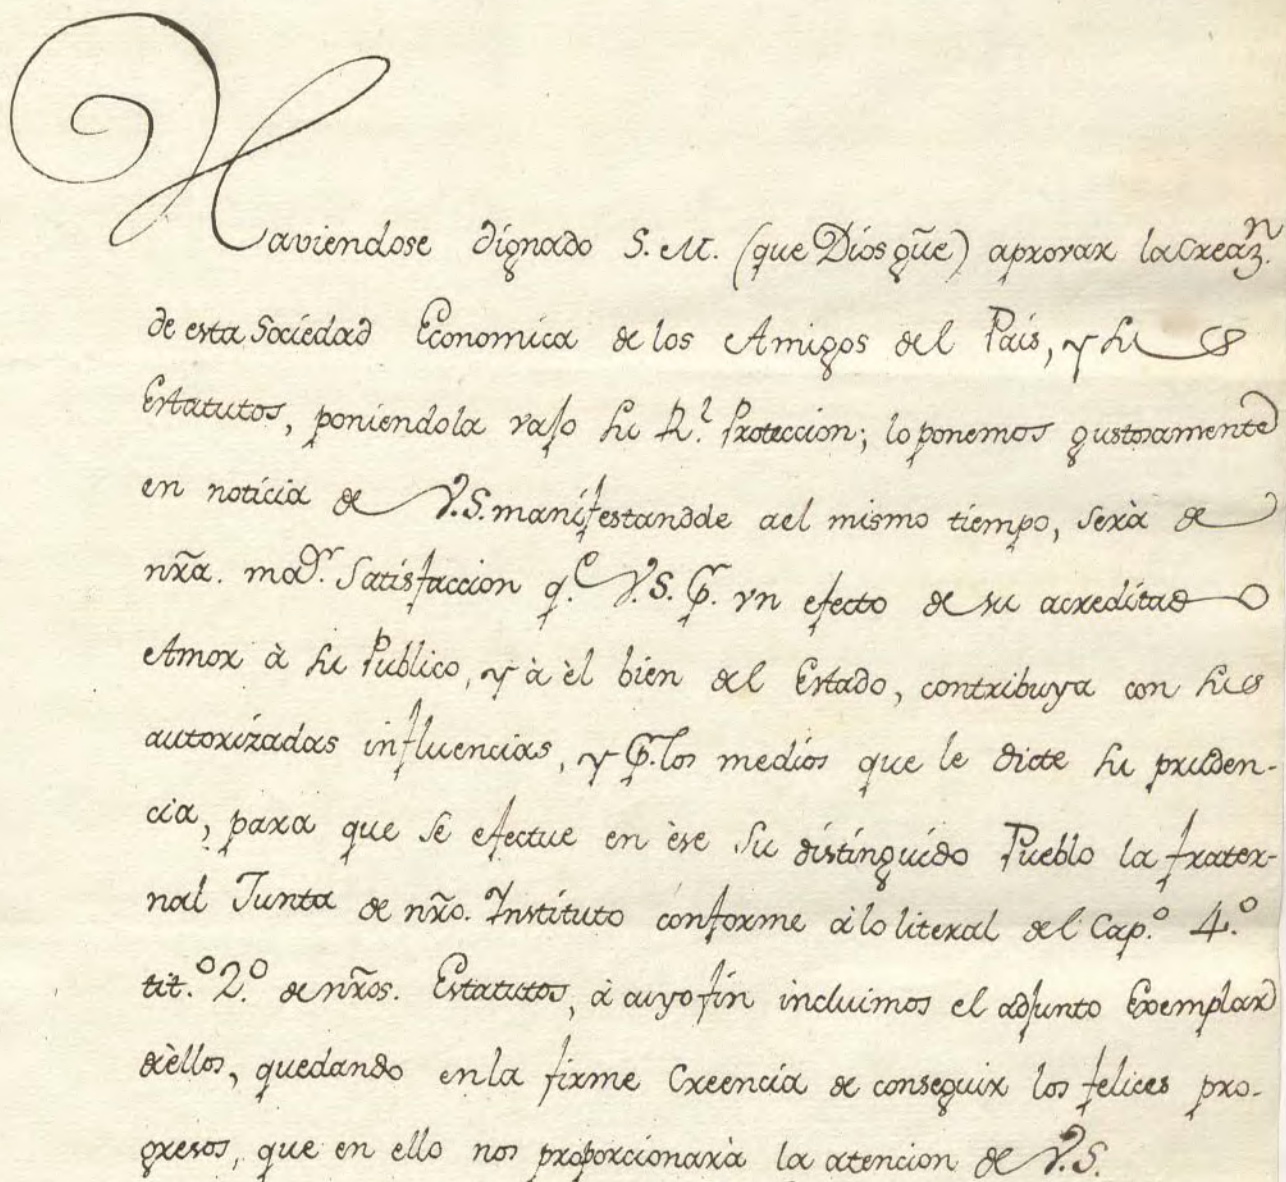 Haviendose dignado S. M. (que Dios gũe) aprovar la Creaz.n
de esta Sociedad Economica de los Amigos del Pais, y su s
Estatutos, poniendola vajo su R.l Proteccion; lo ponemos gustosamente
en noticia de V.S. manifestandole ael mismo tiempo, serà de
nr̃a. mad.r Satisfaccion q.e V.S. P.r vn efecto de su acreditado
Amor à su Publico, y à èl bien del Estado, contribuya con sus
autorizadas influencias, y P.r los medios que le dicte su pruden-
cia, para que se efectue en èse Su distinguido Pueblo la frater-
nal Junta de nr̃o. Instituto conforme à lo literal del Cap.o 4.o
tit.o 2.o de nr̃os. Estatutos, à cuyo fin incluimos el adjunto Exemplar
dèellos, quedando en la firme Creencia de conseguir los felices pro-
gresos, que en ello nos proporcionarà la atencion de V.S.